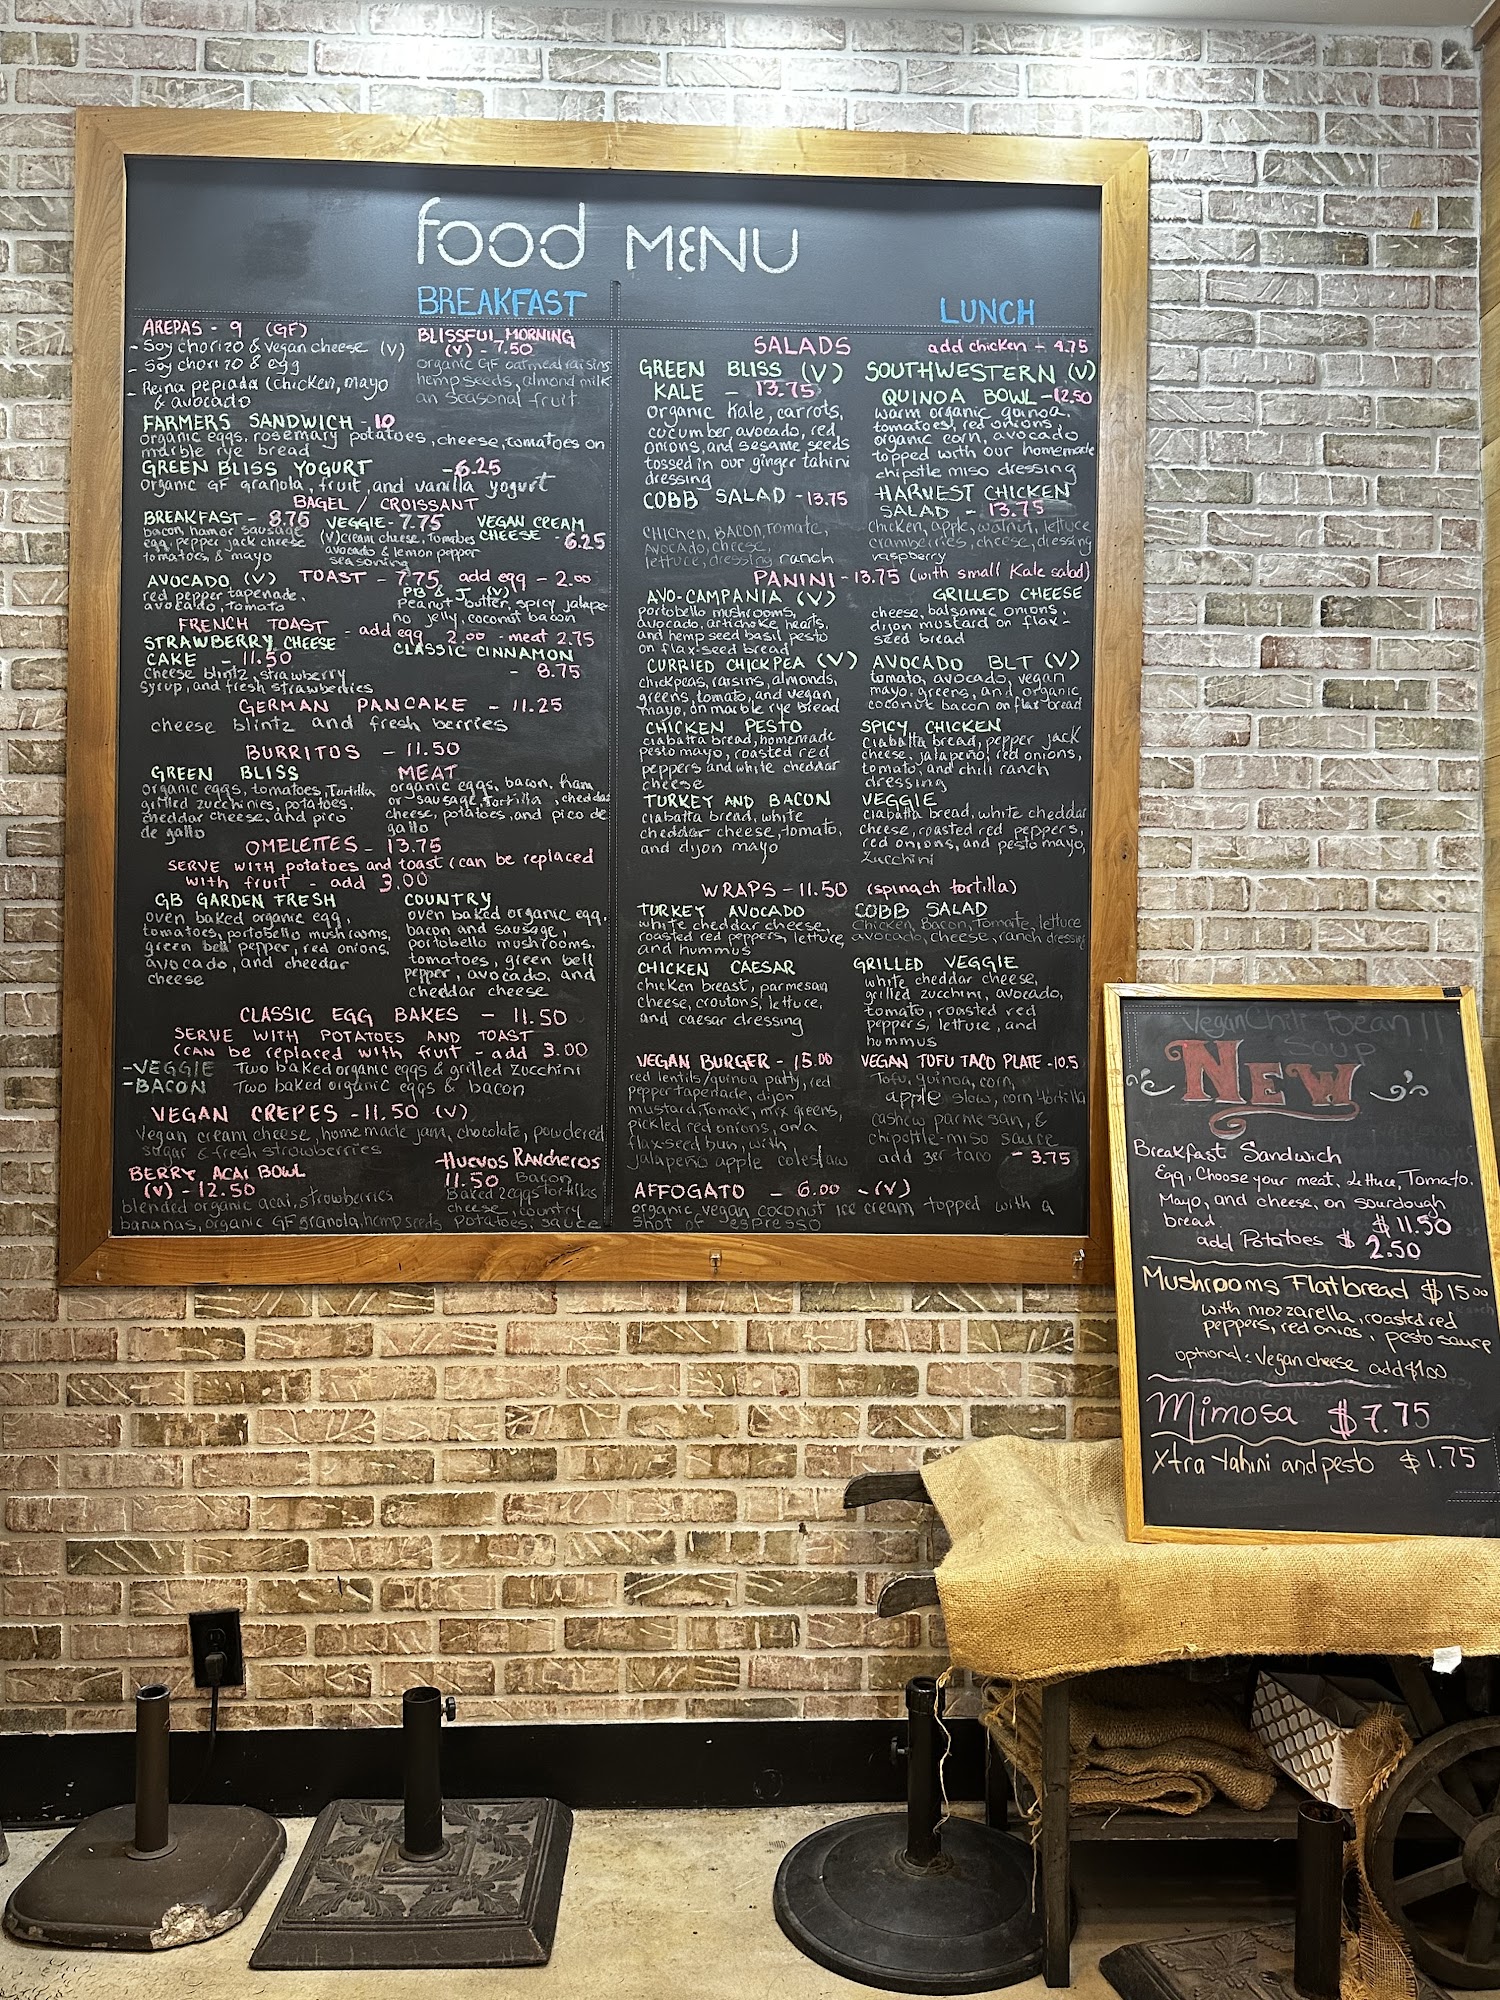 food MENU
BREAKFAST
AREPAS - 9 (GF)
- Soy chorizo & vegan cheese (V)
- Soy chorizo & egg
- Reina pepiada (chicken, mayo
& avocado
BLISSFUL MORNING
(V) - 7.50
organic GF oatmeal raisins
hemp seeds, almond milk
an seasonal fruit
FARMERS SANDWICH - 10
organic eggs, rosemary potatoes, cheese, tomatoes on
marble rye bread
GREEN BLISS YOGURT - 6.25
organic GF granola, fruit, and vanilla yogurt
BAGEL / CROISSANT
BREAKFAST - 8.75
bacon, ham or sausage
egg, pepper jack cheese
tomatoes, & mayo
VEGGIE - 7.75
(V) cream cheese, tomatoes
avocado & lemon pepper
seasoning
VEGAN CREAM
CHEESE - 6.25
TOAST - 7.75 add egg - 2.00
AVOCADO (V)
red pepper tapenade,
avocado, tomato
PB & J (V)
Peanut butter, spicy jalape
no jelly, coconut bacon
FRENCH TOAST - add egg 2.00 - meat 2.75
STRAWBERRY CHEESE
CAKE - 11.50
cheese blintz, strawberry
syrup, and fresh strawberries
CLASSIC CINNAMON
- 8.75
GERMAN PANCAKE - 11.25
cheese blintz and fresh berries
BURRITOS - 11.50
GREEN BLISS
organic eggs, tomatoes, Turtilla
grilled zucchinies, potatoes,
cheddar cheese, and pico
de gallo
MEAT
organic eggs, bacon, ham
or sausage, Tortilla, cheddar
cheese, potatoes, and pico de
gallo
OMELETTES - 13.75
SERVE WITH potatoes and toast (can be replaced
with fruit - add 3.00
GB GARDEN FRESH
oven baked organic egg,
tomatoes, portobello mushrooms,
green bell pepper, red onions,
avocado, and cheedar
cheese
COUNTRY
oven baked organic egg,
bacon and sausage,
portobello mushrooms,
tomatoes, green bell
pepper, avocado, and
cheddar cheese
CLASSIC EGG BAKES - 11.50
SERVE WITH POTATOES AND TOAST
(CAN be replaced with fruit - add 3.00
-VEGGIE Two baked organic eggs & grilled zucchini
-BACON Two baked organic eggs & bacon
VEGAN CREPES - 11.50 (V)
Vegan cream cheese, homemade jam, chocolate, powdered
sugar & fresh strowberries
BERRY ACAI BOWL
(V) - 12.50
blended organic acai, strowberries
bananas, organic GF granola, hemp seeds
Huevos Rancheros
11.50 Bacon
Baked 2 eggs tortillas
cheese, country
potatoes, sauce
LUNCH
SALADS add chicken - 4.75
GREEN BLISS (V)
KALE - 13.75
organic kale, carrots,
cucumber avocado, red
onions, and sesame seeds
tossed in our ginger tahini
dressing
SOUTHWESTERN (V)
QUINOA BOWL - 12.50
warm organic quinoa,
tomatoes, red onions,
organic corn, avocado
topped with our homemade
chipotle miso dressing
COBB SALAD - 13.75
CHICHEN, BACON, Tomate,
Avocado, cheese,
lettuce, dressing ranch
HARVEST CHICKEN
SALAD - 13.75
chicken, apple, walnut, lettuce
cramberries, cheese, dressing
raspberry
PANINI - 13.75 (with small Kale salad)
AVO-CAMPANIA (V)
portobello mushrooms,
avocado, artichoke hearts,
and hemp seed basil pesto
on flax-seed bread
GRILLED CHEESE
cheese, balsamic onions,
dijon mustard on flax-
seed bread
CURRIED CHICKPEA (V)
chickpeas, raisins, almonds,
greens, tomato, and vegan
mayo, on marble rye bread
AVOCADO BLT (V)
tomato, avocado, vegan
mayo, greens, and organic
coconut bacon on flax bread
CHICKEN PESTO
ciabatta bread, homemade
pesto mayo, roasted red
peppers and white cheddar
cheese
SPICY CHICKEN
ciabatta bread, pepper jack
cheese, jalapeño, red onions,
tomato, and chili ranch
dressing
TURKEY AND BACON
ciabatta bread, white
cheddar cheese, tomato,
and dijon mayo
VEGGIE
ciabatta bread, white cheddar
cheese, roasted red peppers,
red onions, and pesto mayo,
zucchini
WRAPS - 11.50 (spinach tortilla)
TURKEY AVOCADO
white cheddar cheese,
roasted red peppers, lettuce,
and hummus
COBB SALAD
Chicken, Bacon, Tomate, lettuce
avocado, cheese, ranch dressing
CHICKEN CAESAR
chicken breast, parmesan
cheese, croutons, lettuce,
and caesar dressing
GRILLED VEGGIE
white cheddar cheese,
grilled zucchini, avocado,
tomato, roasted red
peppers, lettuce, and
hummus
VEGAN BURGER - 15.00
red lentils/quinoa patty, red
pepper tapenade, dijon
mustard, Tomate, mix greens,
pickled red onions, on a
flaxseed bun, with
jalapeño apple coleslaw
VEGAN TOFU TACO PLATE - 10.5
Tofu, quinoa, corn,
apple slow, corn tortilla
cashew parmesan, &
chipottle-miso sauce
add 3er taco - 3.75
AFFOGATO - 6.00 - (V)
organic vegan coconut ice cream topped with a
shot of espresso
Vegan Chili Bean!!
Soup
NEW
Breakfast Sandwich
Egg, Choose your meat, Lettuce, Tomato,
Mayo, and cheese, on sourdough
bread $11.50
add Potatoes $2.50
Mushrooms Flatbread $15.00
with mozzarella, roasted red
peppers, red onios, pesto sauce
optional: Vegan cheese add $1.00
Mimosa $7.75
Xtra tahini and pesto $1.75